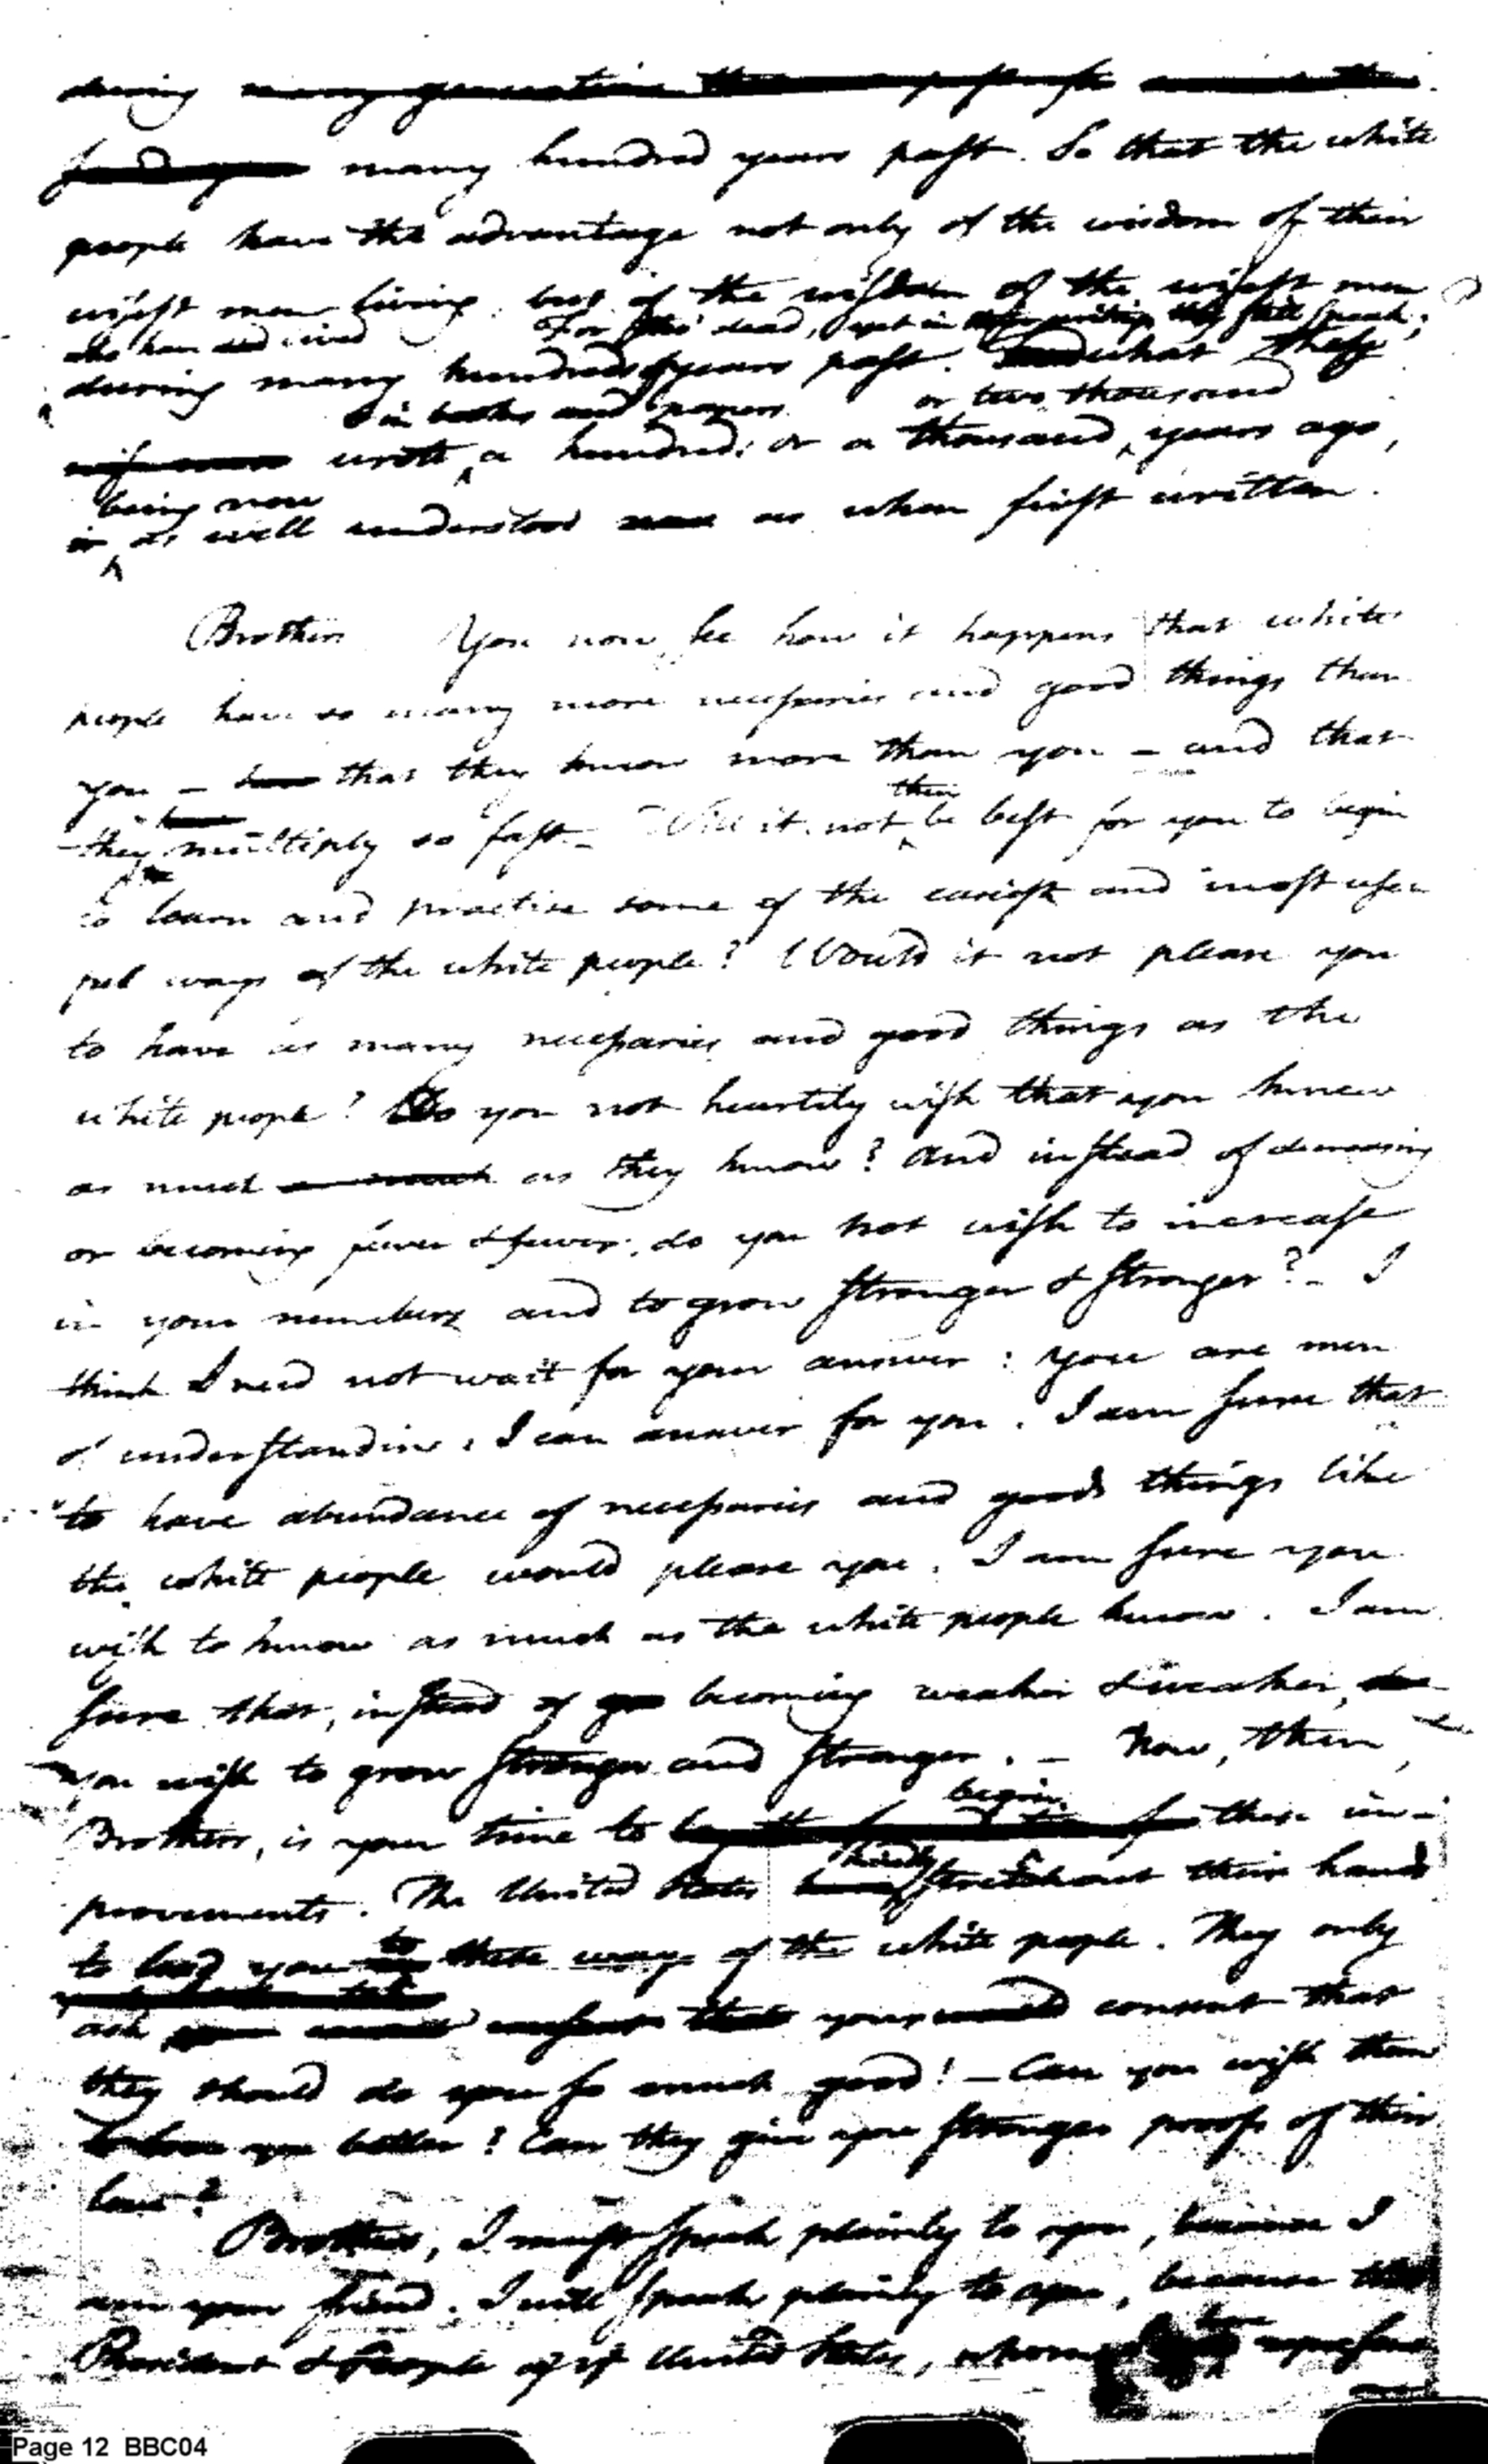 during many generations
many hundred years past. So that the white
people have the advantage not only of the wisdom of their
wisest men living, but of the wisdom of the wisest men
who have lived For tho' dead, yet in writings they still speak;
during many hundreds of years past. what these
in books and papers or two thousand
wrote a hundred, or a thousand, years ago,
being now
is as well understood now as when first written.
Brothers You now see how it happens that white
people have so many more necessaries and good things than
you – that they know more than you – and that
then
they multiply so fast – Will it not be best for you to begin
to learn and practise some of the easiest and most use-
ful ways of the white people? Would it not please you
to have as many necessaries and good things as the
white people? Do you not heartily wish that you knew
as much as much as they know? And instead of decreasing
or becoming fewer & fewer, do you not wish to increase
in your numbers and to grow stronger & stronger? – I
think I need not wait for your answer: you are men
of understanding, I can answer for you. I am sure that
to have abundance of necessaries and good things like
the white people would please you. I am sure you
wish to know as much as the white people know. I am
sure that, instead of becoming weaker & weaker,
you wish to grow stronger and stronger. – Now, then,
begin
Brothers, is your time to these im-
kindly
provements. The United States stretch out their hands
to
to lead you these ways of the white people. They only
ask your consent that
they should do you so much good! – Can you wish them
to love you better? Can they give you stronger proofs of their
love?
Brothers, I must speak plainly to you, because I
am your friend. I will speak plainly to you, because the
President & People of ye United States, whom I here represent
Page 12 BBC04